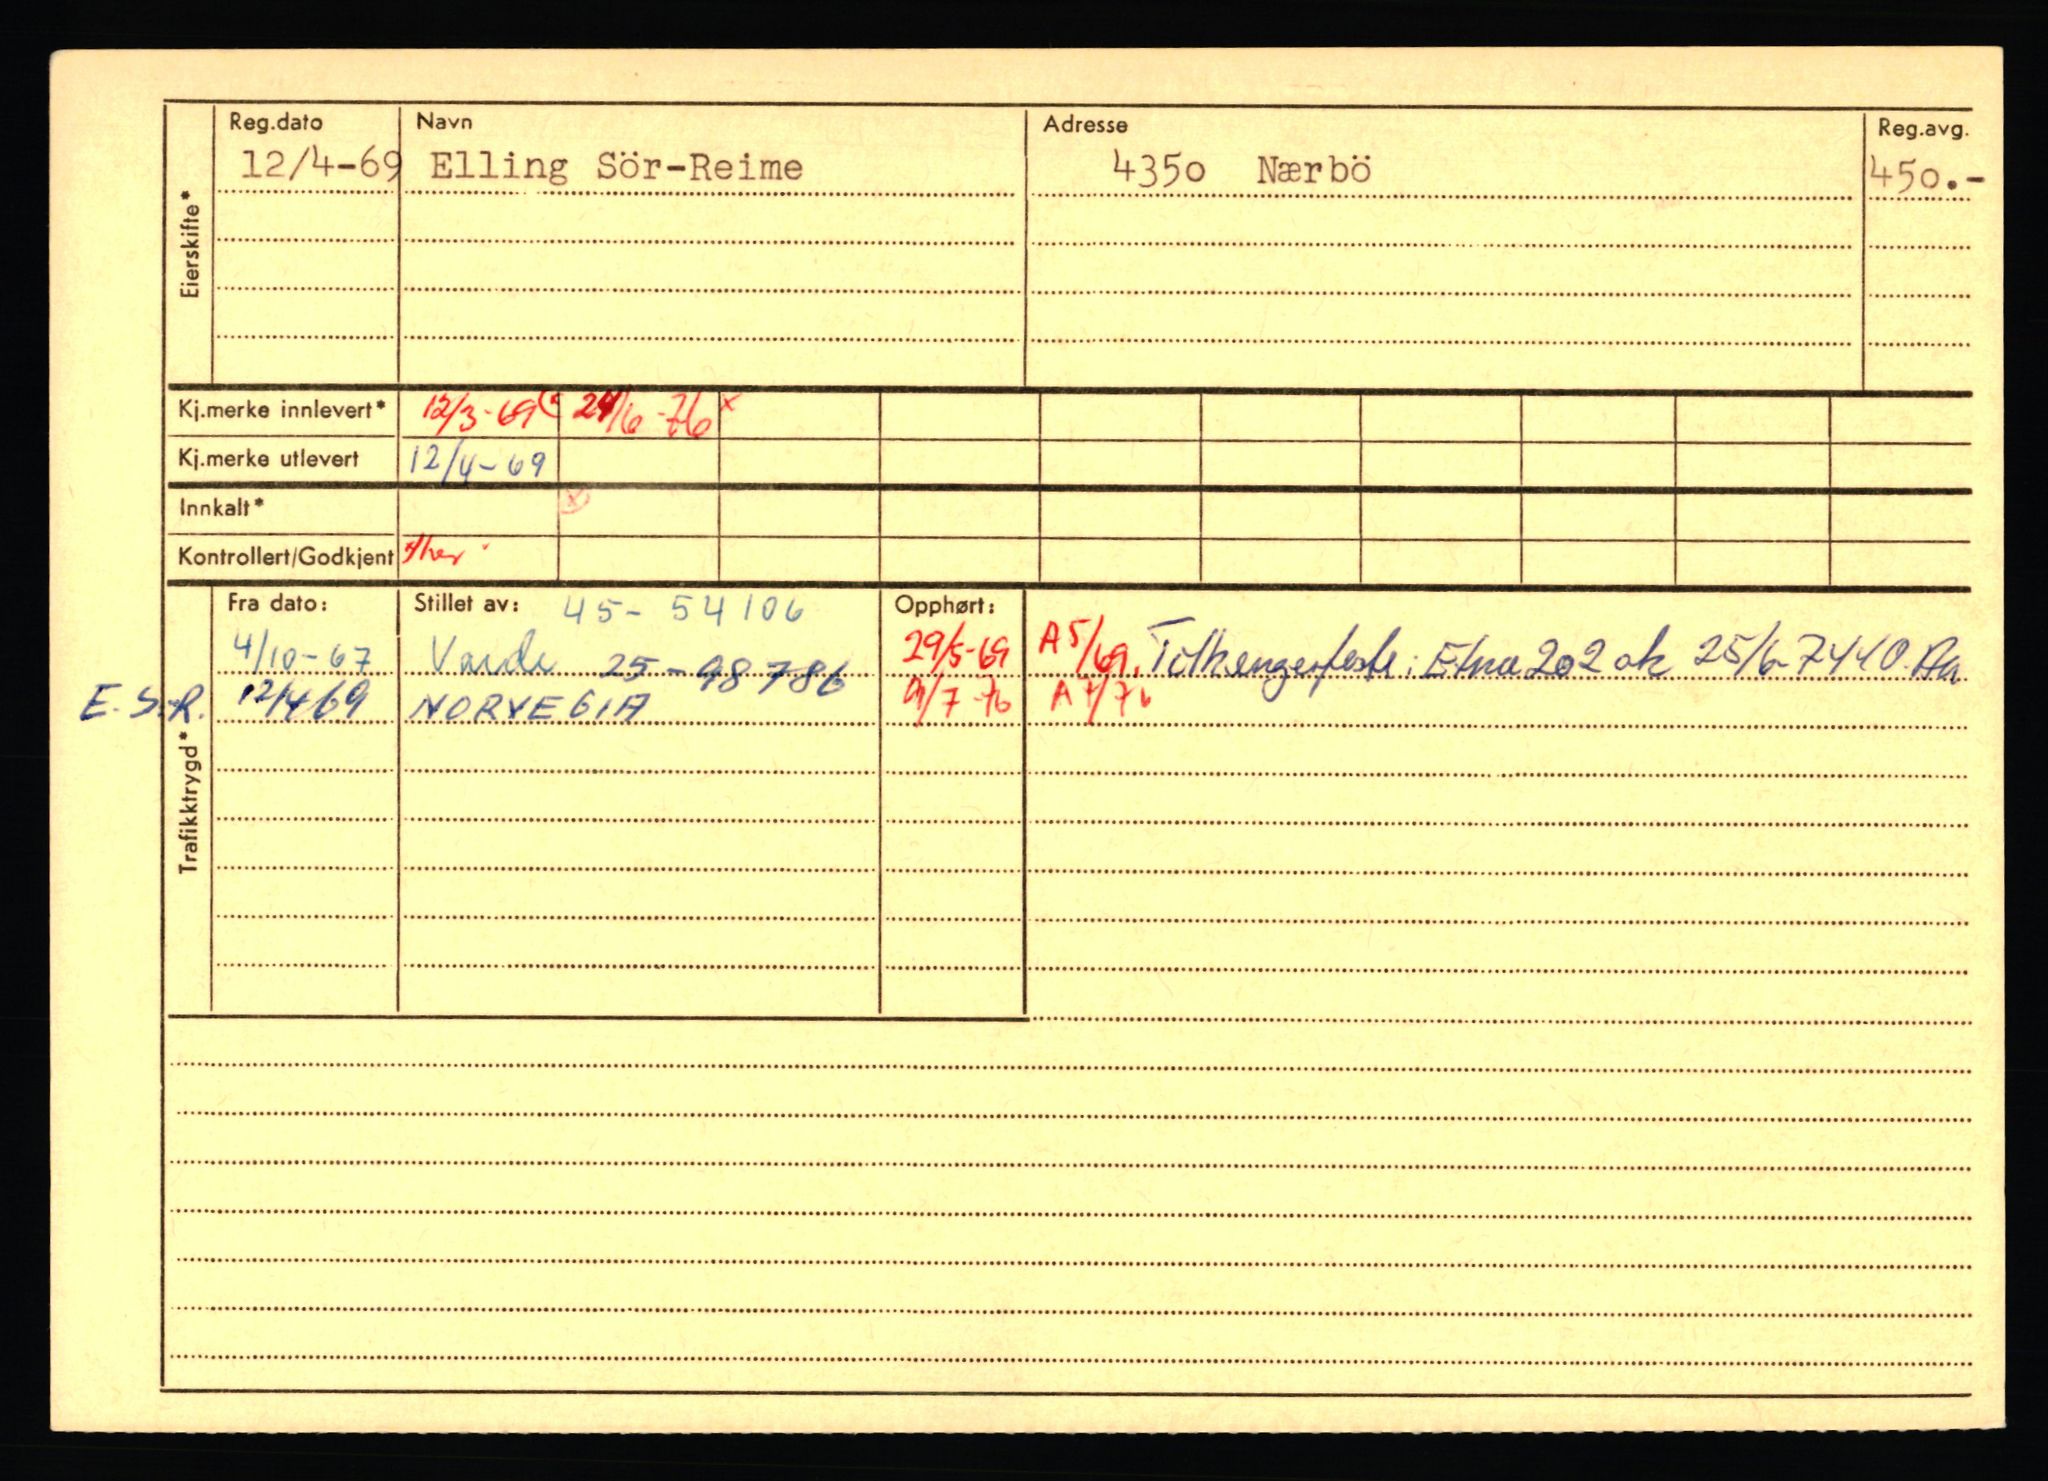 Reg.dato Navn Adresse Reg.avg.
12/4-69 Elling Sör-Reime 4350 Nærbö 450.-
Eierskifte*
Kj.merke innlevert* 12/3-69 24/6-76 x
Kj.merke utlevert 12/4-69
Innkalt* x
Kontrollert/Godkjent
Fra dato: Stillet av: 45-54106 Opphørt:
4/10-67 Varde 25-98786 29/5-69 A 5/69. Tilhengerfeste: Etna 202 ok 25/6-74
E. S.-R. 12/4 69 NORVEGIA 9/7-76 A 7/76
Trafikktrygd*